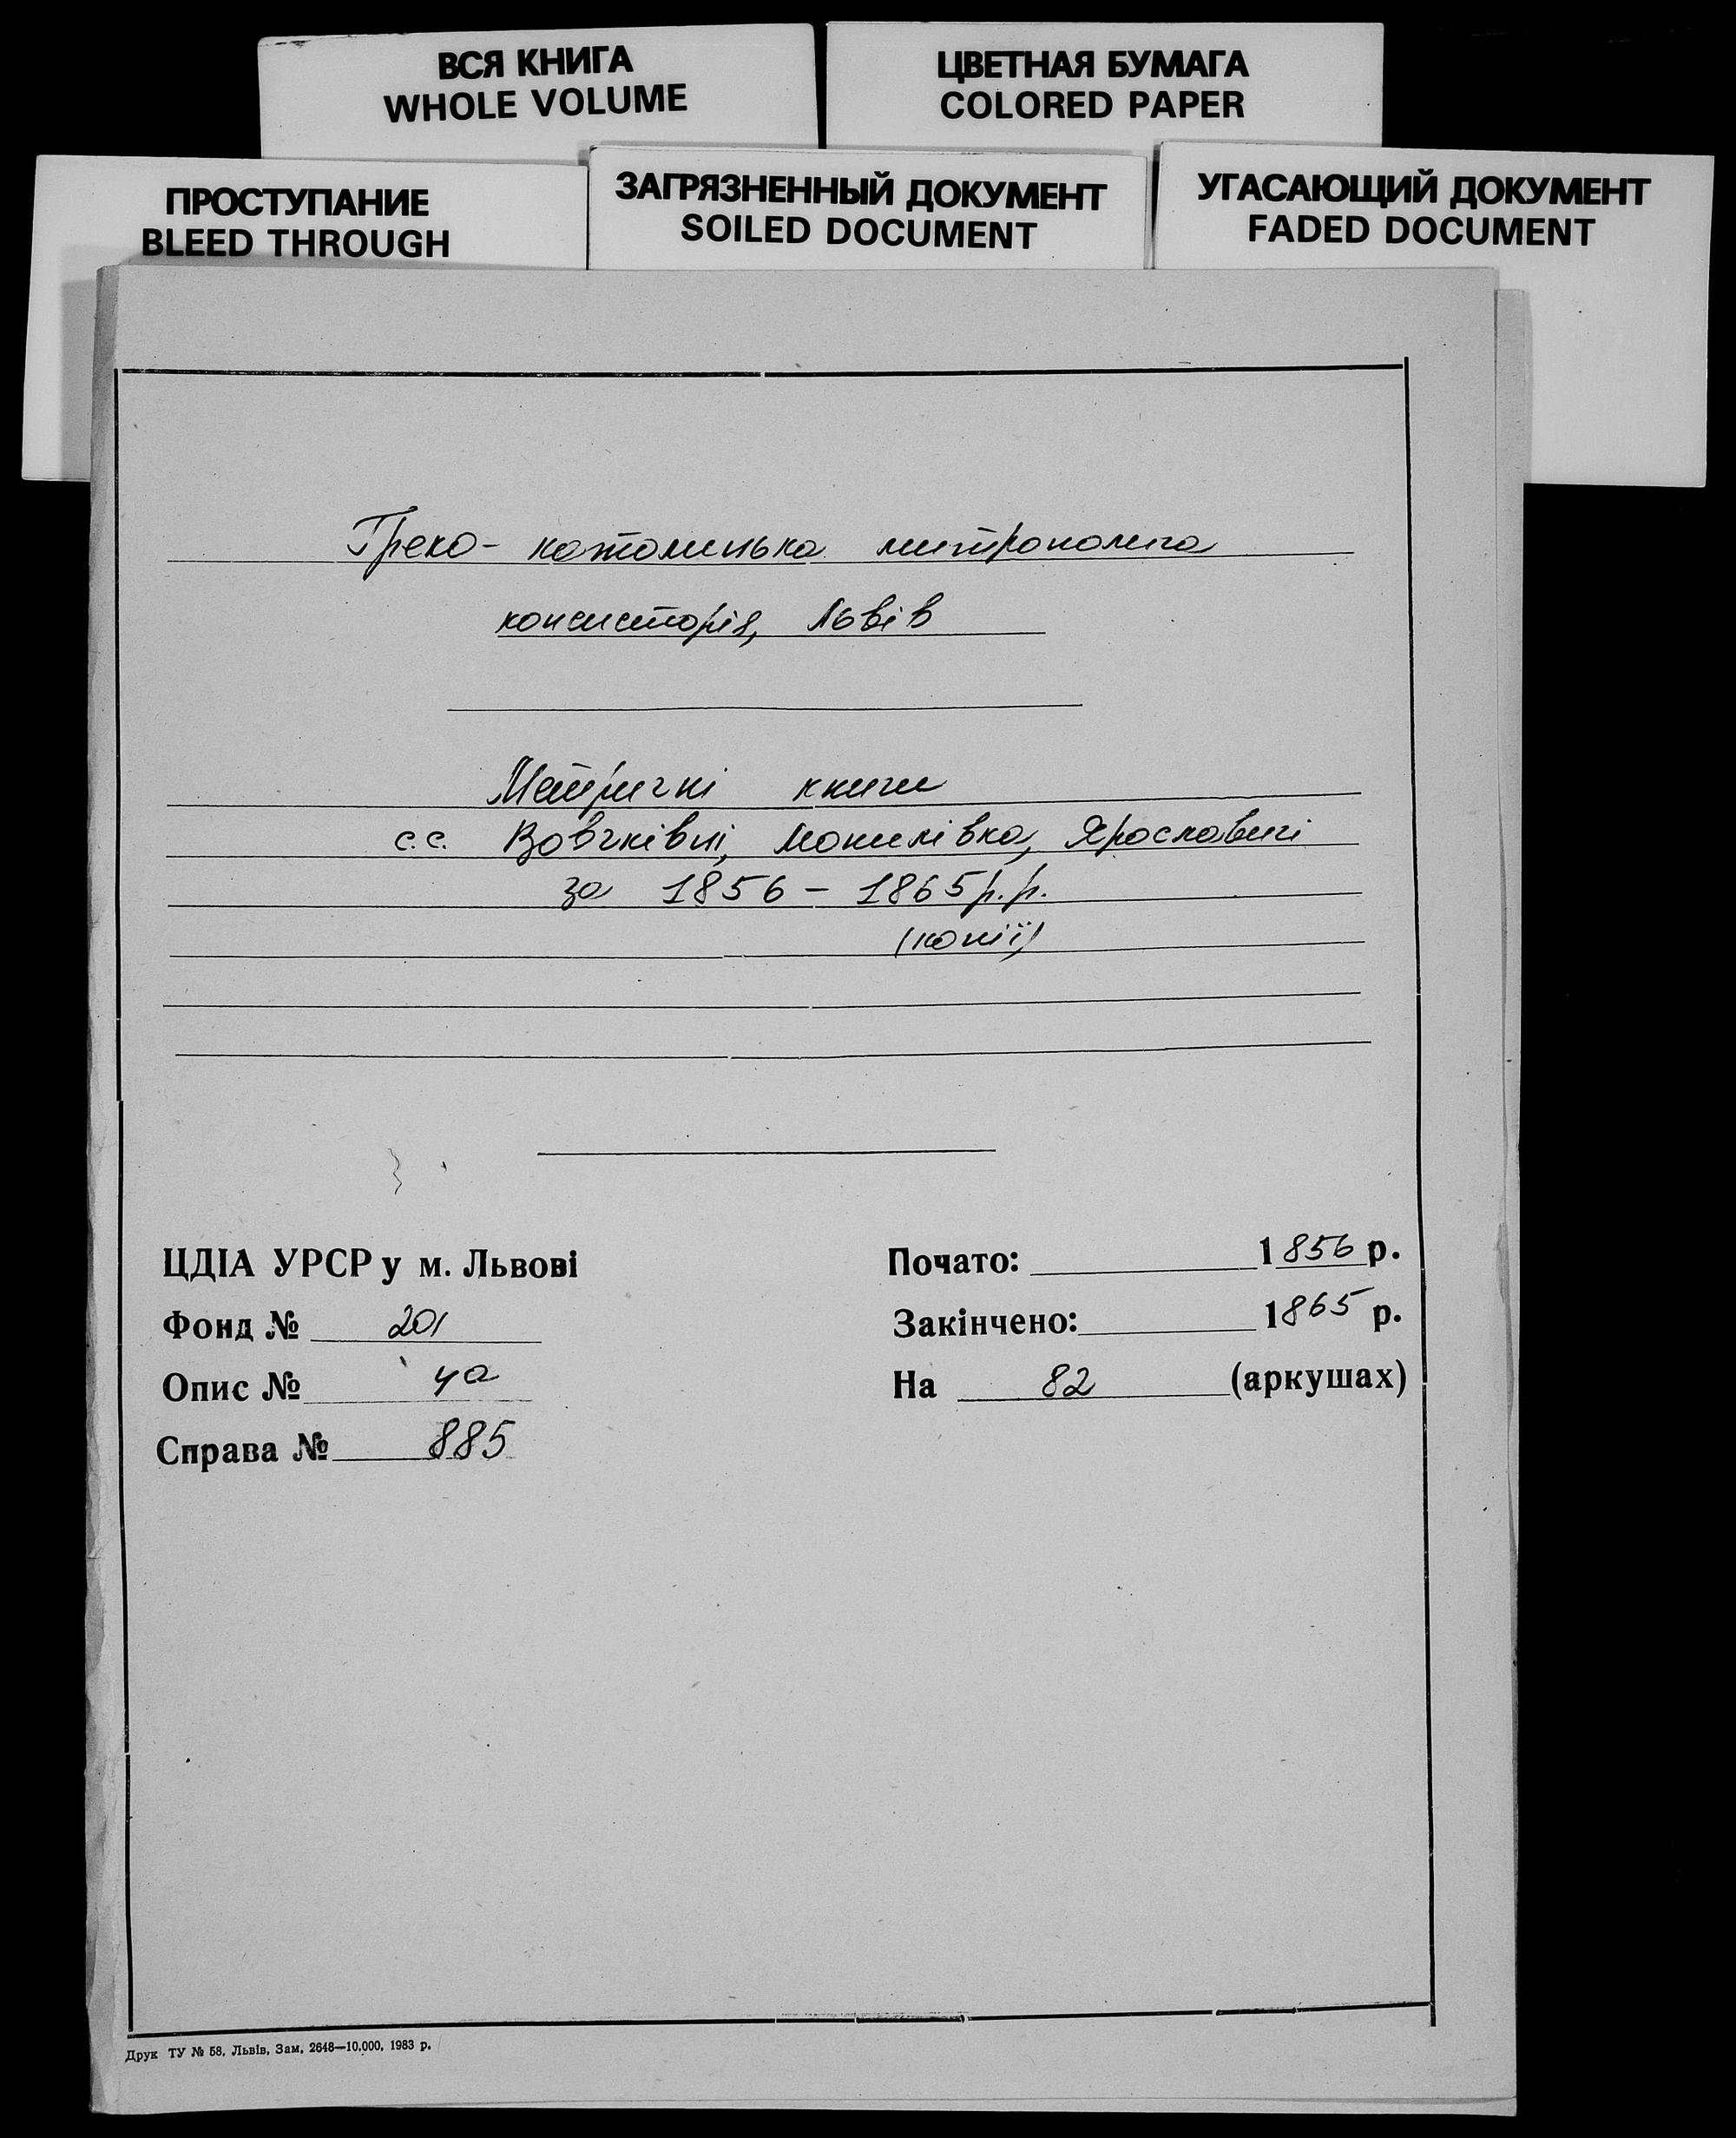 ВСЯ КНИГА
WHOLE VOLUME
ЦВЕТНАЯ БУМАГА
COLORED PAPER
ПРОСТУПАНИЕ
BLEED THROUGH
ЗАГРЯЗНЕННЫЙ ДОКУМЕНТ
SOILED DOCUMENT
УГАСАЮЩИЙ ДОКУМЕНТ
FADED DOCUMENT
Греко-католицька митрополича
консисторія, Львів
Метричні книги
с.с. Вовчківці, Монилівка, Ярославичі
за 1856 - 1865 р.р.
(копії)
ЦДІА УРСР у м. Львові
Фонд № 201
Опис № 4а
Справа № 885
Почато: 1856 р.
Закінчено: 1865 р.
На 82 (аркушах)
Друк ТУ № 58, Львів, Зам. 2648—10.000. 1983 р.